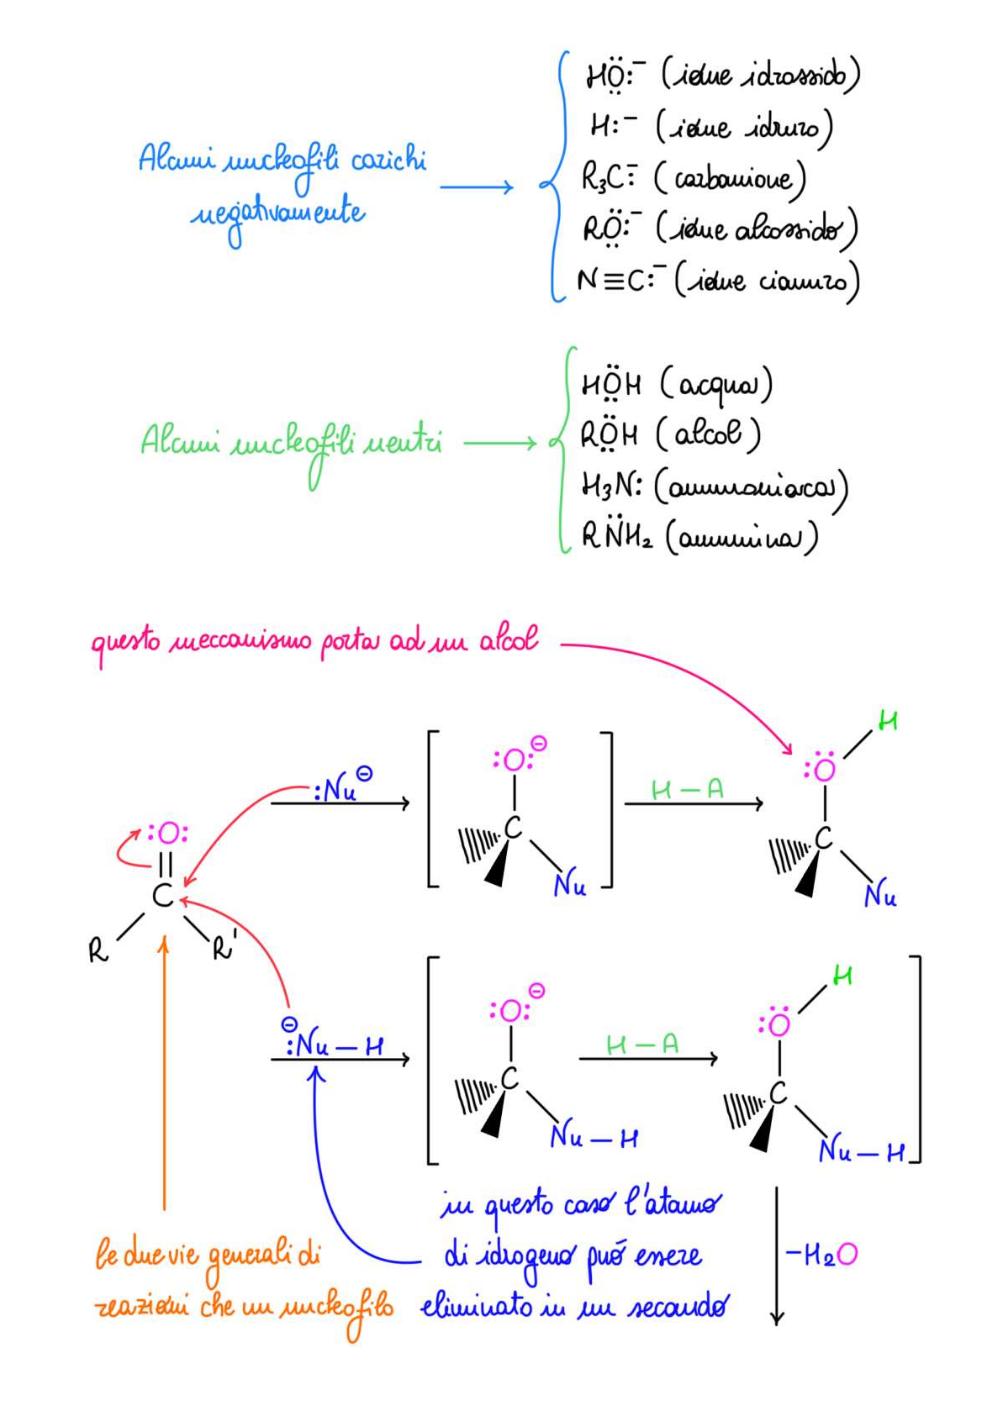 Alcuni nucleofili carichi
negativamente
HÖ:⁻ (ione idrossido)
H:⁻ (ione idruro)
R₃C:⁻ (carbanione)
RÖ:⁻ (ione alcossido)
N≡C:⁻ (ione cianuro)
Alcuni nucleofili neutri
HÖH (acqua)
RÖH (alcol)
H₃N: (ammoniaca)
RN̈H₂ (ammina)
questo meccanismo porta ad un alcol
:O:
C
R R'
:Nu⊖
:O:⊖
C
Nu
H-A
H
:Ö
C
Nu
⊖
:Nu-H
:O:⊖
C
Nu-H
H-A
H
:Ö
C
Nu-H
-H₂O
le due vie generali di
reazioni che un nucleofilo
in questo caso l'atomo
di idrogeno puó essere
eliminato in un secondo